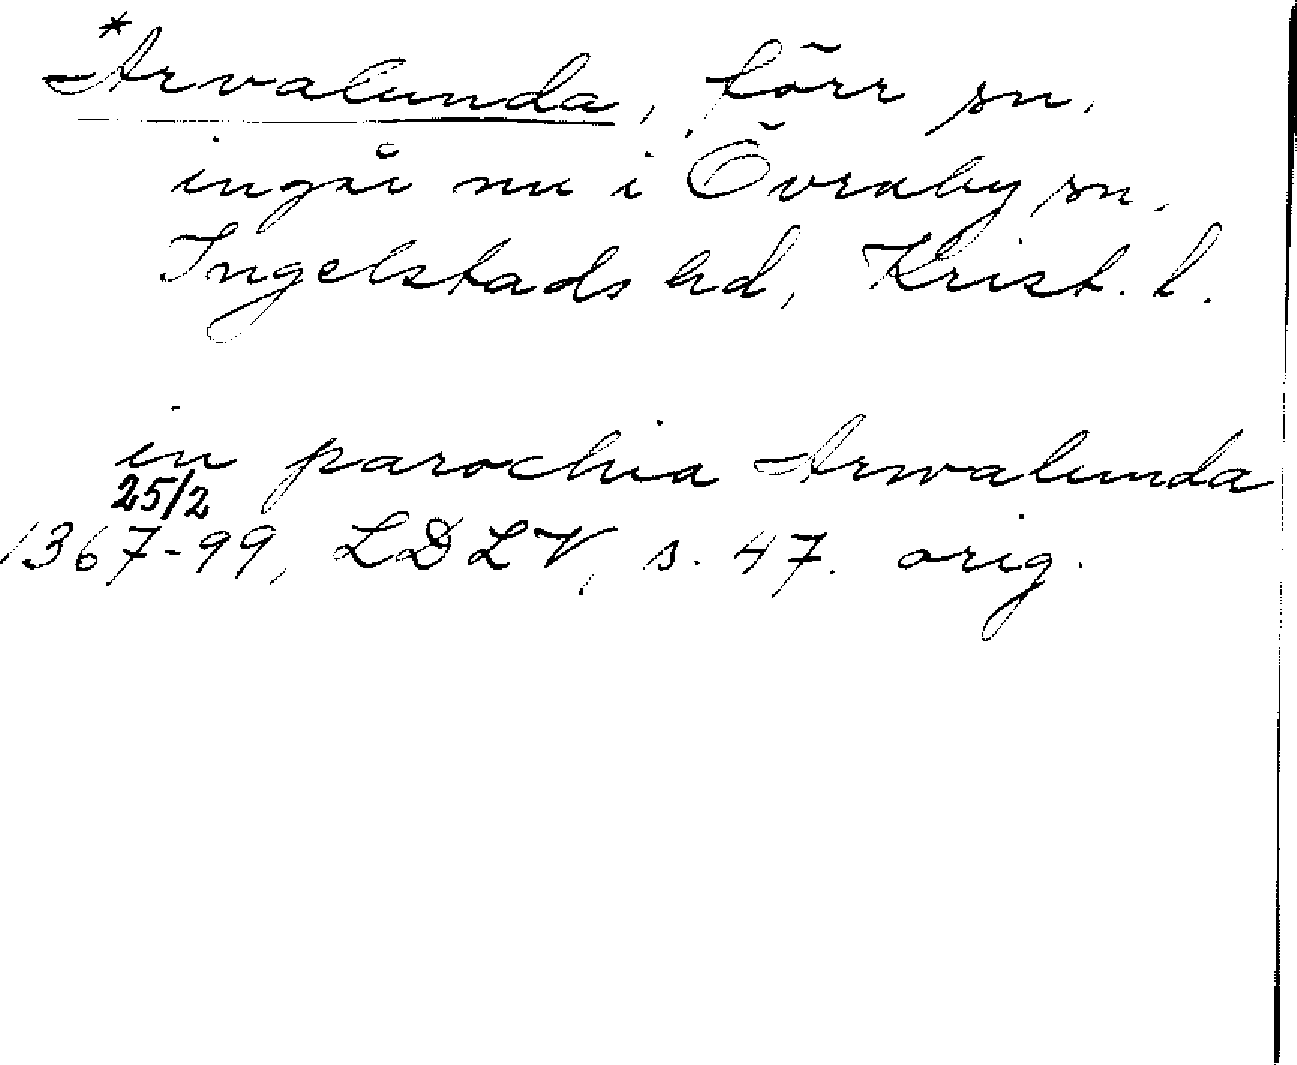 *Arvalunda, förr sn,
ingår nu i Övraby sn.
Ingelstads hd, Krist. l.
in parochia Arwalunda
25/2
1367-99, LDLV, s. 47. orig.